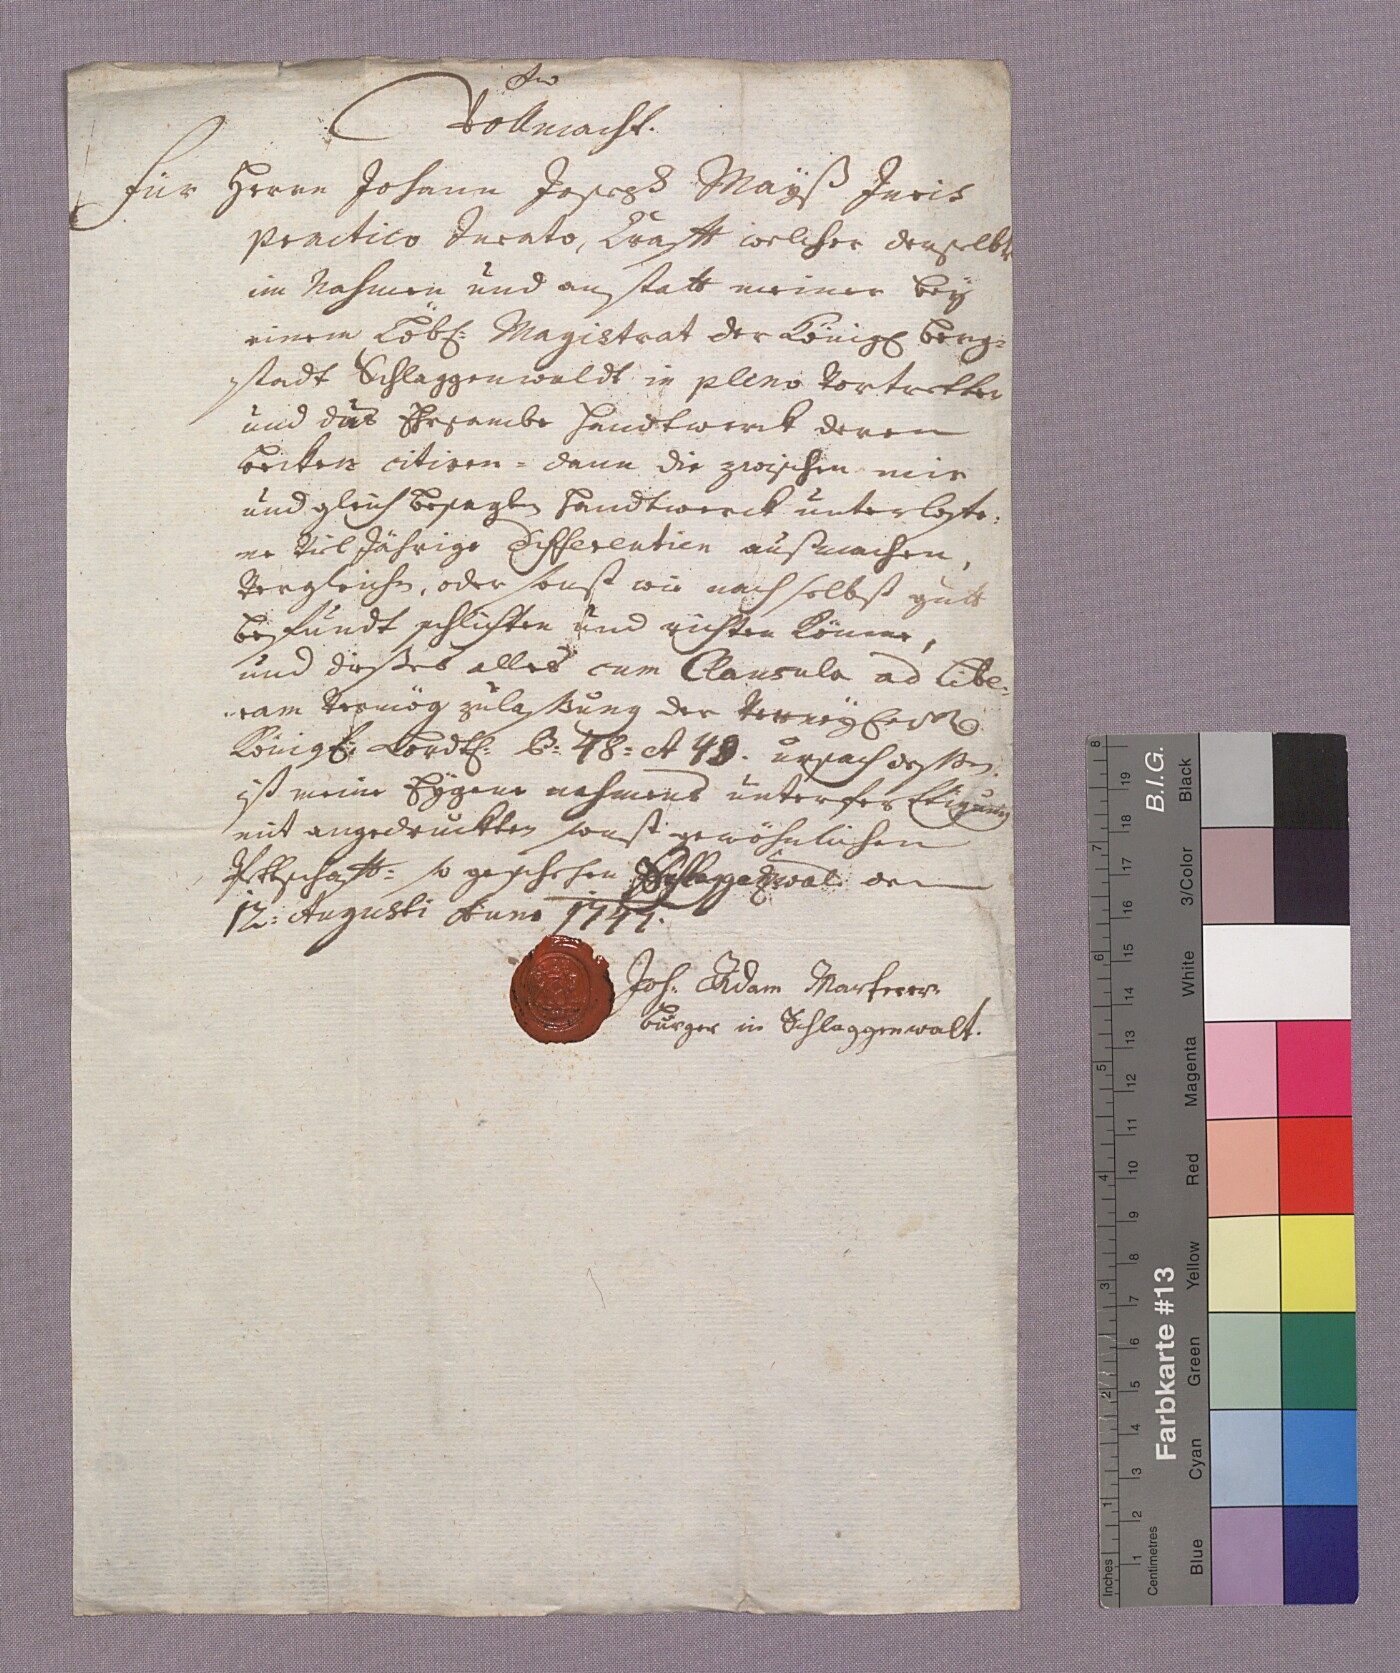 Vollmacht.
Für Herrn Johann Joseph Mayß Juris
Practico Jurato, Krafft welcher derselbe
im Nahmen und anstatt meiner bey
einem Löbl: Magistrat der Königl Berg-
stadt Schlaggenwaldt in pleno Vortretten
und das Ehrsambe Handtwerck deren
Becken citiren = dann die zwischen mir
und gleich besagten Handtwerck unterloffe-
ne Viel Jährige differentien außmachen,
Vergleichen, oder sonst wie nach selbst gutt
befundt schlichten und richten könne,
und dießes alles cum Clausula ad libe-
ram Vermög zulaßung der
Königl: 48: et 49. ursach deßen
ist meine Eygene nahmens unterferttigung
mit angedruckten sonst gewöhnlichen
Pettschafft: so geschehen Schlaggenwal den
12: Augusti Anno 1747.
Joh: Adam
burger in Schlaggenwalt.
Farbkarte #13
B.I.G.
Inches
Centimetres
Blue
Cyan
Green
Yellow
Red
Magenta
White
3/Color
Black